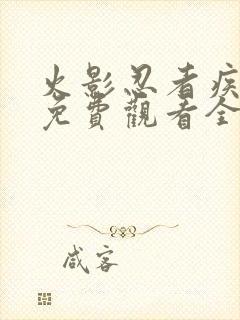 火影忍者疾
免費觀看全
咸客